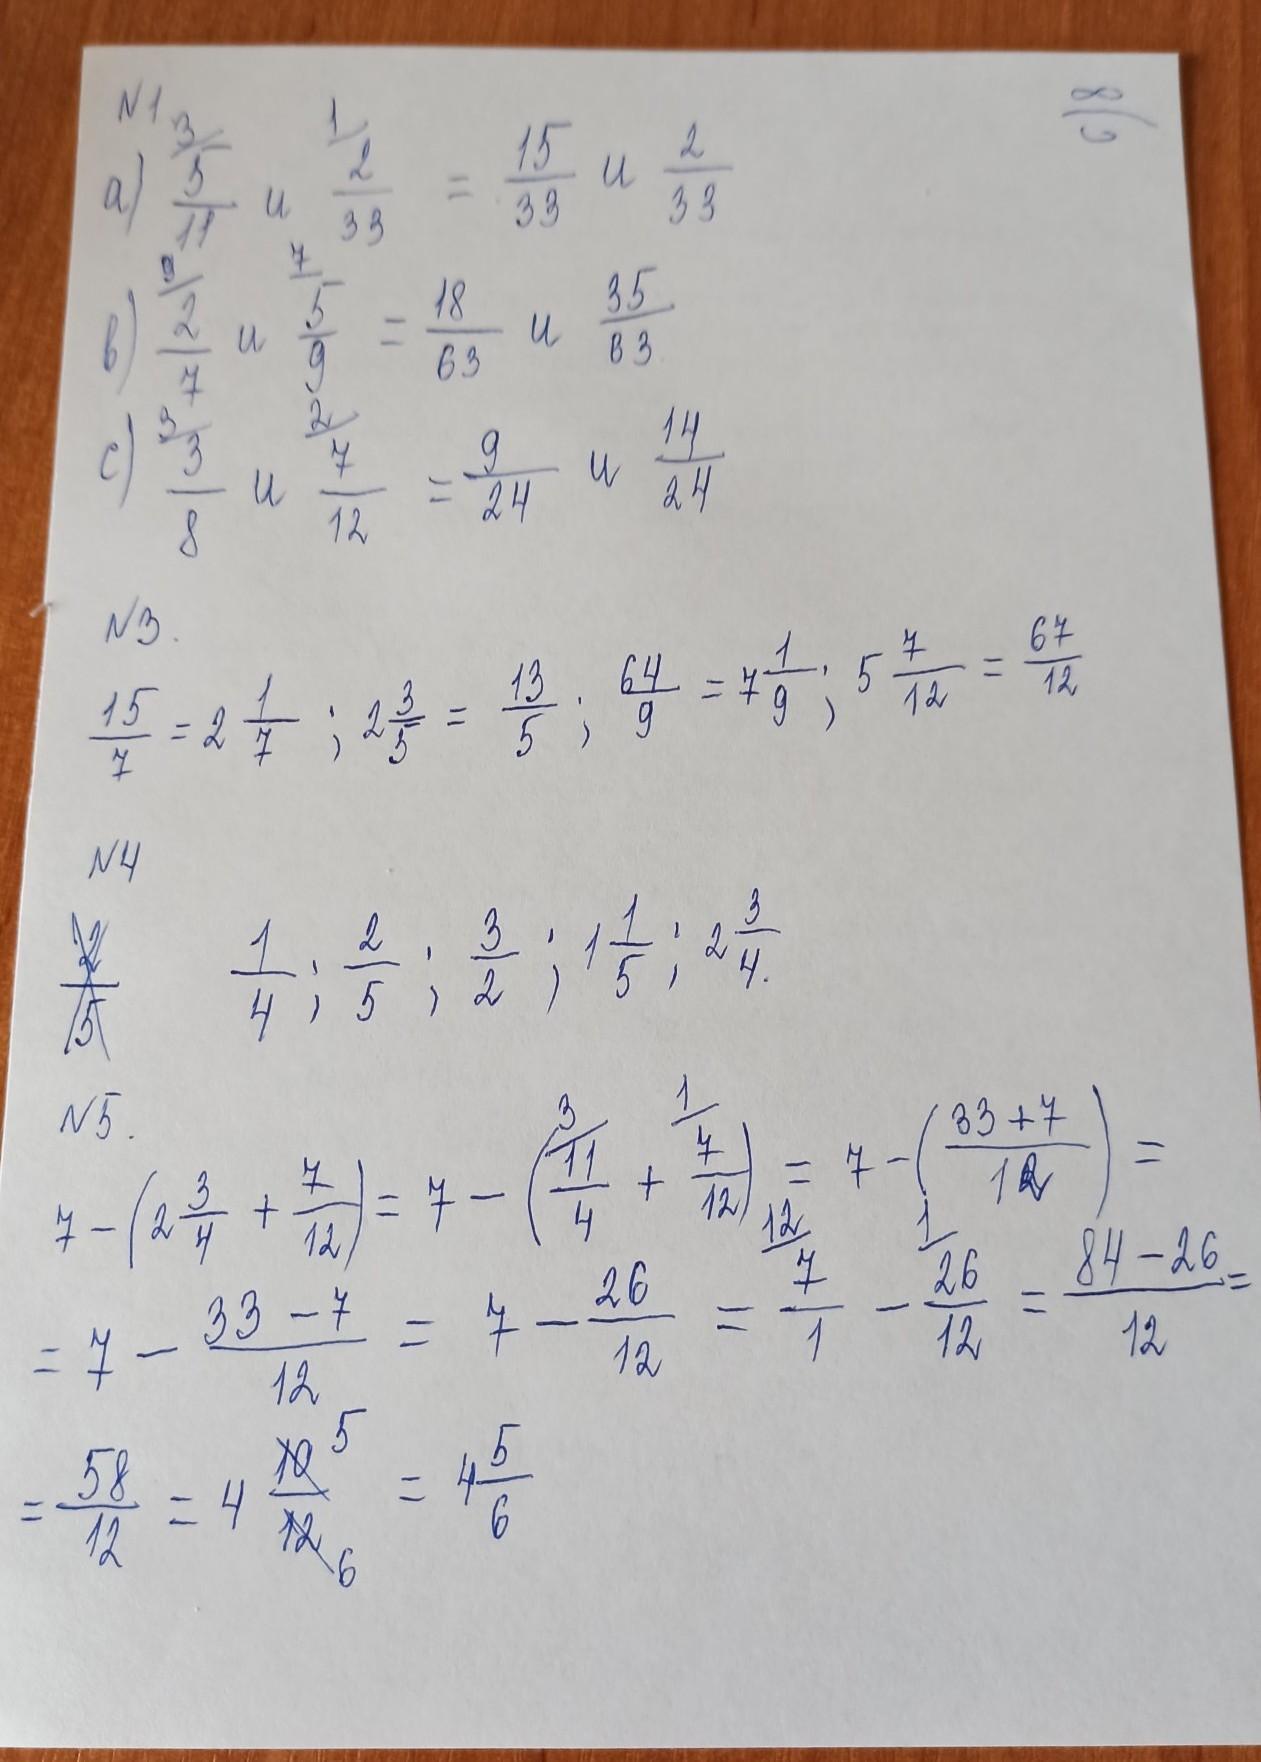 N1
а) 3/ 5/11 и 1/ 2/33 = 15/33 и 2/33
в) 9/ 2/7 и 7/ 5/9 = 18/63 и 35/63
с) 3/ 3/8 и 2/ 7/12 = 9/24 и 14/24
N3.
15/7 = 2 1/7 ; 2 3/5 = 13/5 ; 64/9 = 7 1/9 ; 5 7/12 = 67/12
N4
2/5 1/4 ; 2/5 ; 3/2 ; 1 1/5 ; 2 3/4.
N5.
7 - (2 3/4 + 7/12) = 7 - (3/ 11/4 + 1/ 7/12) = 7 - ((33+7)/12) =
= 7 - (33-7)/12 = 7 - 26/12 = 12/ 7/1 - 1/ 26/12 = (84-26)/12 =
= 58/12 = 4 10/12 5 6 = 4 5/6